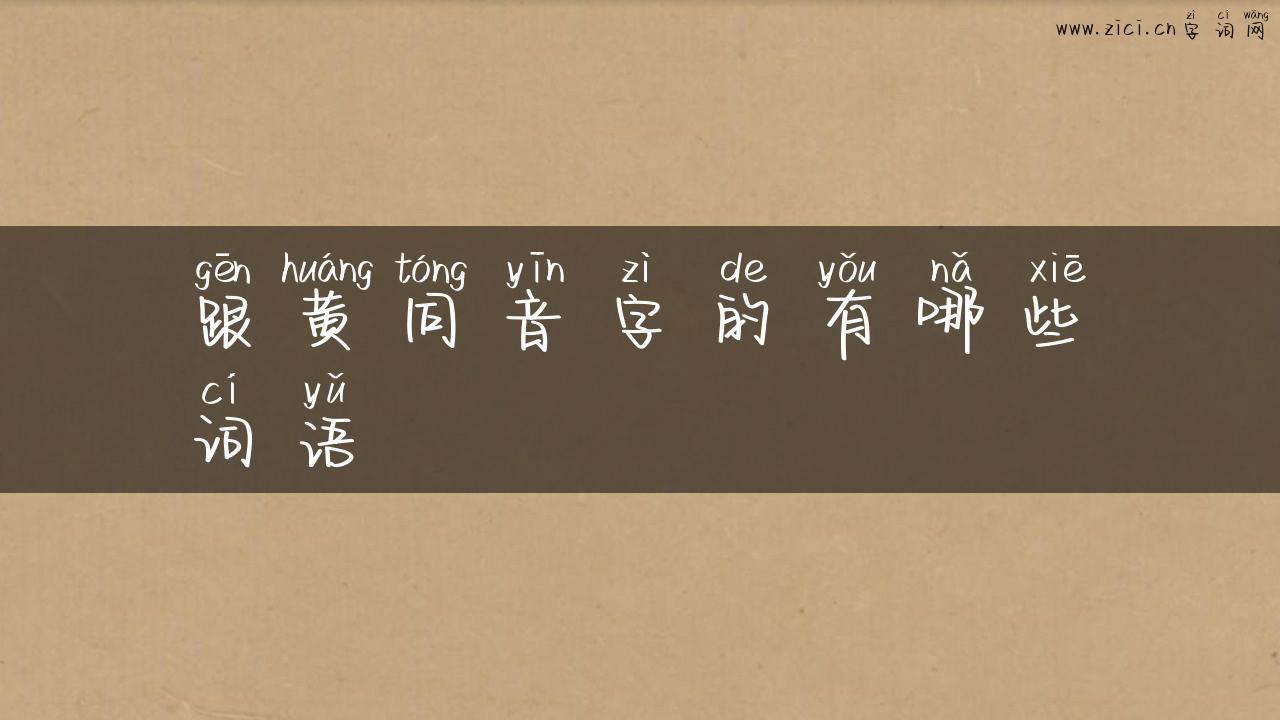 zì cí wǎng
www.zici.cn 字 词 网
gēn huáng tóng yīn zì de yǒu nǎ xiē
跟 黄 同 音 字 的 有 哪 些
cí yǔ
词 语